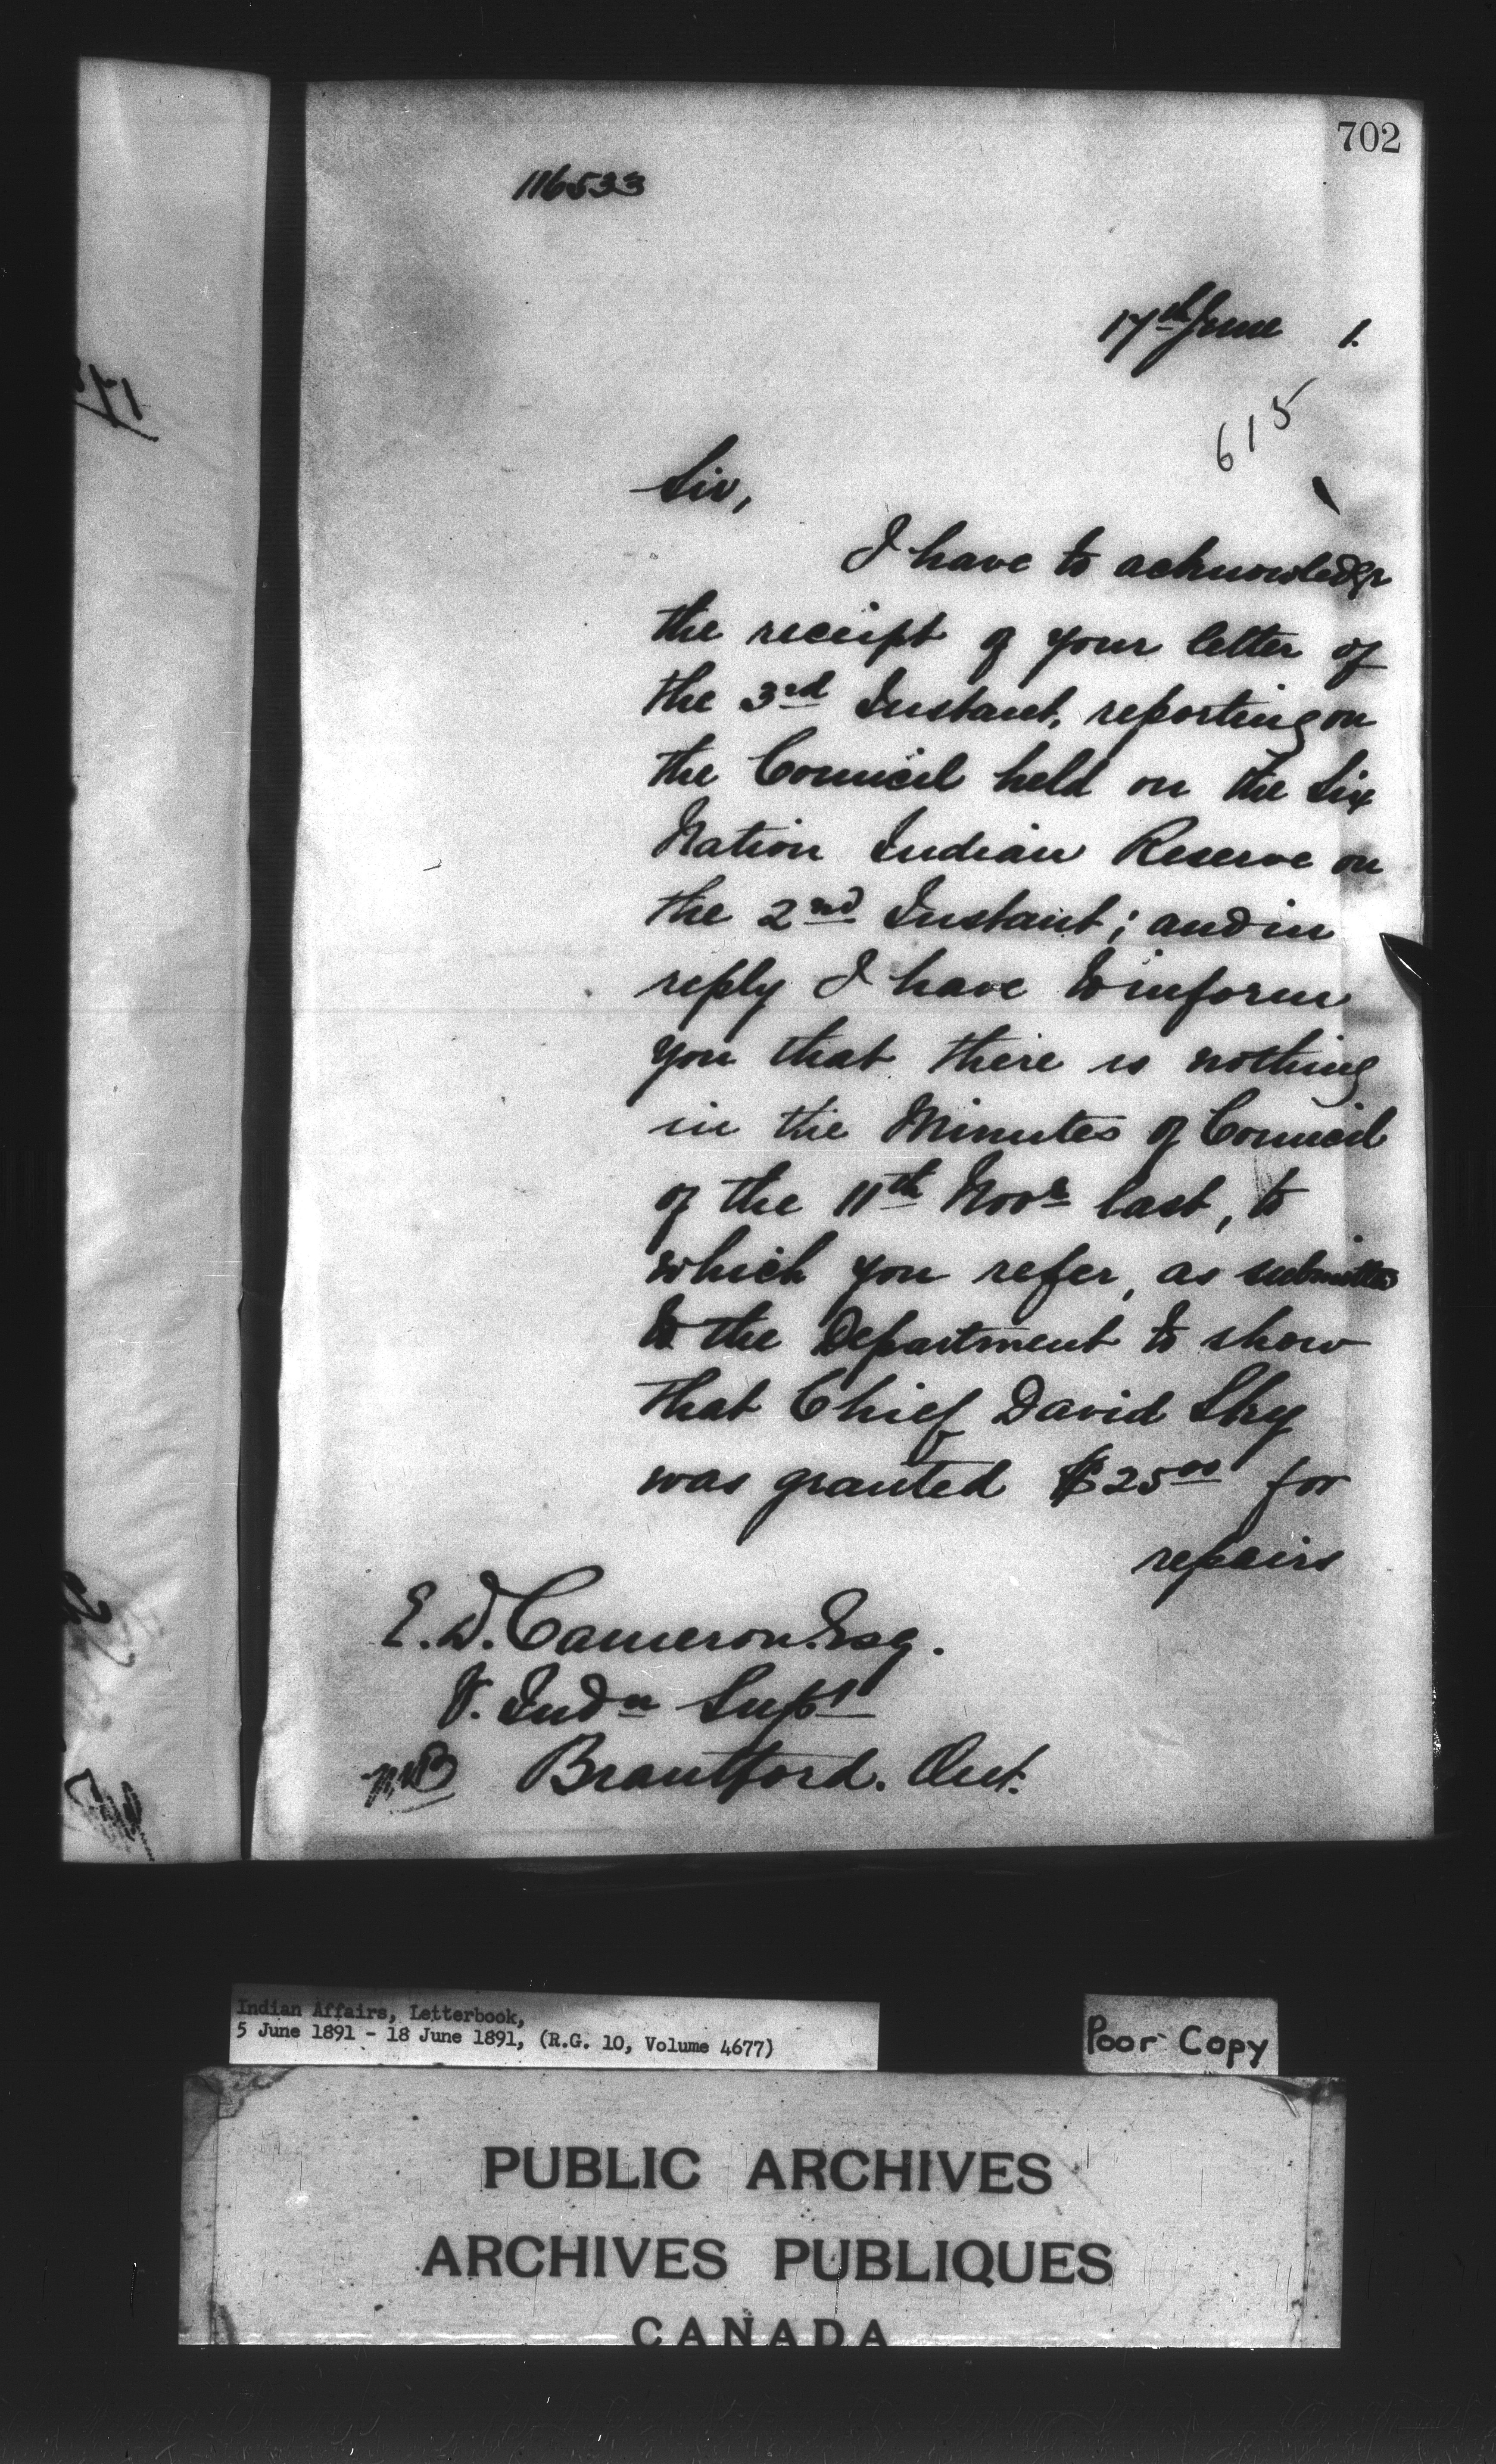 702
116533
17th June 1.
615
Sir,
I have to acknowledge
the receipt of your letter of
the 3rd Instant, reporting on
the Council held on the Six
Nation Indian Reserve on
the 2nd Instant; and in
reply I have to inform
you that there is nothing
in the Minutes of Council
of the 11th Novr last, to
which you refer, as submitted
to the Department to show
that Chief David Sky
was granted $25 00 for
repairs
E. D. Cameron. Esq.
V. Indn Supt
Brantford. Ont.
Indian Affairs, Letterbook,
5 June 1891 - 18 June 1891, (R.G. 10, Volume 4677)
Poor Copy
PUBLIC ARCHIVES
ARCHIVES PUBLIQUES
CANADA